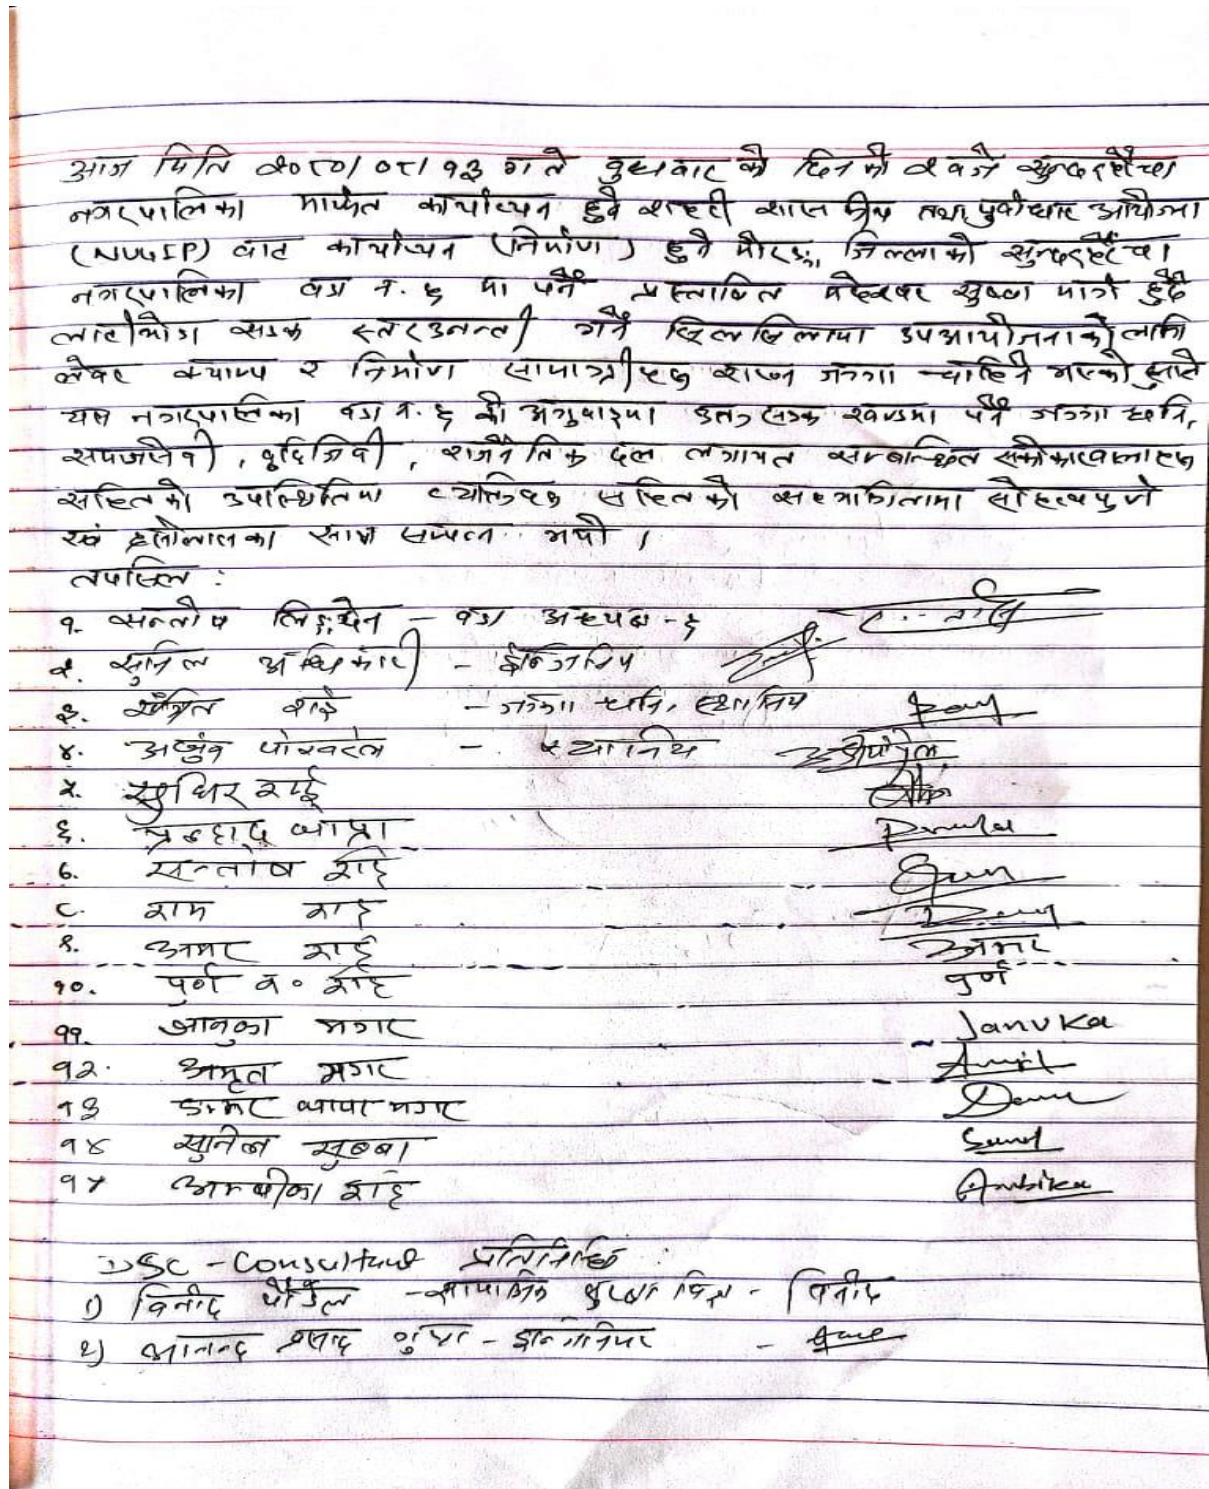 आज मिति २०८०/०८/१३ गते वुधवार को दिनको २ वजे सुन्दरहरैंचा
नगरपालिका मार्फत कार्यान्वयन हुने शहरी शासकीय तथा पुर्वाधार आयोजना
(NUGIP) वाट कार्यान्वयन (निर्माण) हुने मोरङ, जिल्लाको सुन्दरहरैंचा
नगरपालिका वडा नं. ६ मा पर्ने प्रस्तावित सुब्बा मार्ग हुदै
सडक स्तरउन्नती गर्ने सिलसिलामा उपआयोजनाको लागि
लेवर क्याम्प र निर्माण सामाग्रीहरु राख्न जग्गा चाहिने भएको हुनाले
यस नगरपालिका वडा नं. ६ को अगुवाइमा उक्त सडक खण्डमा पर्ने जग्गा धनि,
समाजसेवी, वुद्धिजिवी, राजनैतिक दल लगायत सम्बन्धित सरोकारवालाहरु
सहितको उपस्थितिमा व्यक्तिहरु सहितको सहभागितामा सौहार्दपुर्ण
एवं छलफलका साथ सम्पन्न भयो।
तपसिल :
१. सन्तोष लिङ्थेन - वडा अध्यक्ष - ६
२. सुनिल अधिकारी - ईन्जिनियर
३. राई - जग्गा धनि, स्थानिय
४. अर्जुन पोखरेल - स्थानिय
५. सुधिर राई
६. प्रल्हाद थापा
७. सन्तोष राई
८. राम राई
९. अमर राई अमर
१०. पुर्ण व० राई पुर्ण
११. जानुका मगर Januka
१२. अमृत मगर Amrit
१३ डम्मर थापा मगर
१४ सुनिल सुब्बा Sunil
१५ अम्बीका राई Ambika
DSC - Consultant प्रतिनिधि :
१) विनोद पौडेल - सामाजिक सुरक्षा विज्ञ - विनोद
२) आनन्द प्रसाद गुप्ता - इन्जिनियर -